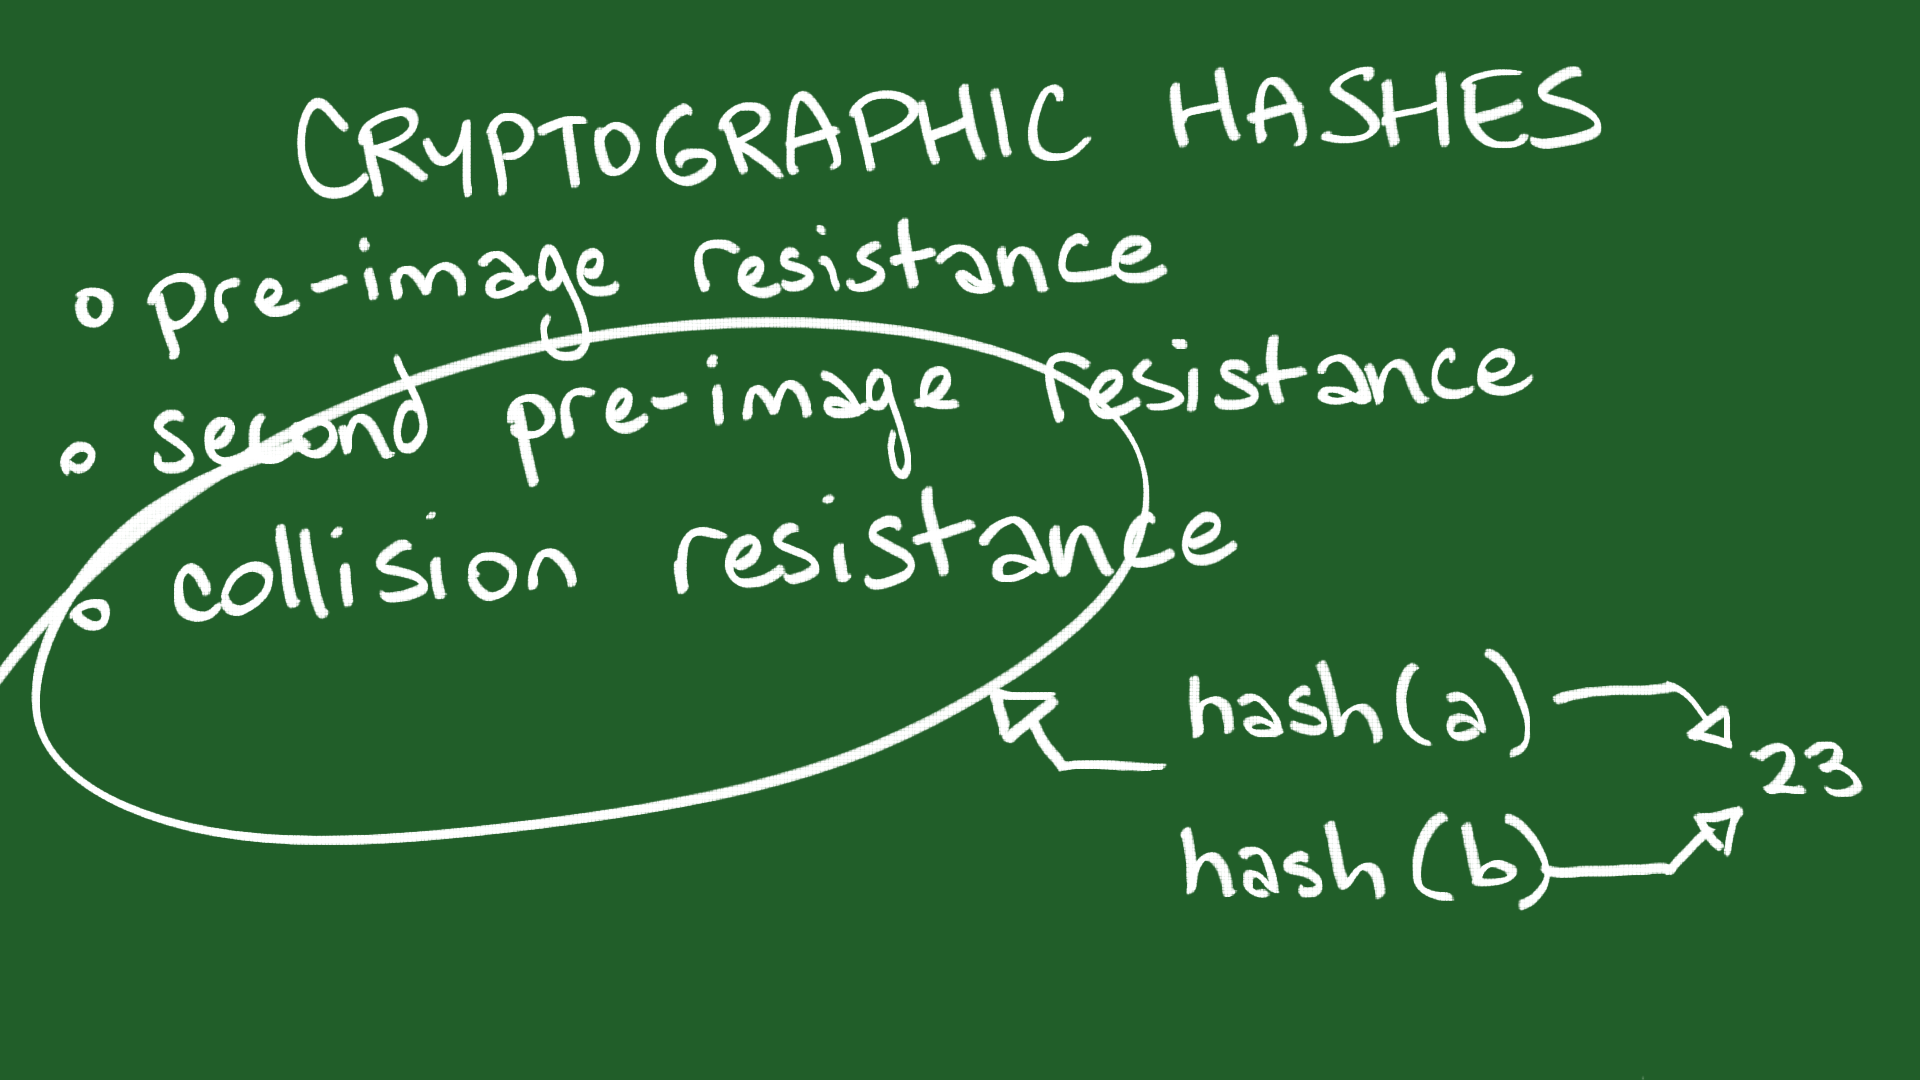 CRYPTOGRAPHIC HASHES
o pre-image resistance
o second pre-image resistance
o collision resistance
hash(a)
23
hash(b)